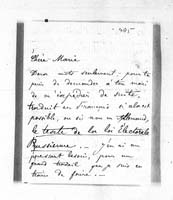 205
Chère Marie
Deux mots seulement, pour te
prier de demander à ton mari
de m'expédier de suite,
traduit en français si c'est
possible, ou si non en allemand,
le texte de la loi électorale
Prussienne... j'en ai un
pressant besoin, pour un
grand travail que je suis en
train de faire...